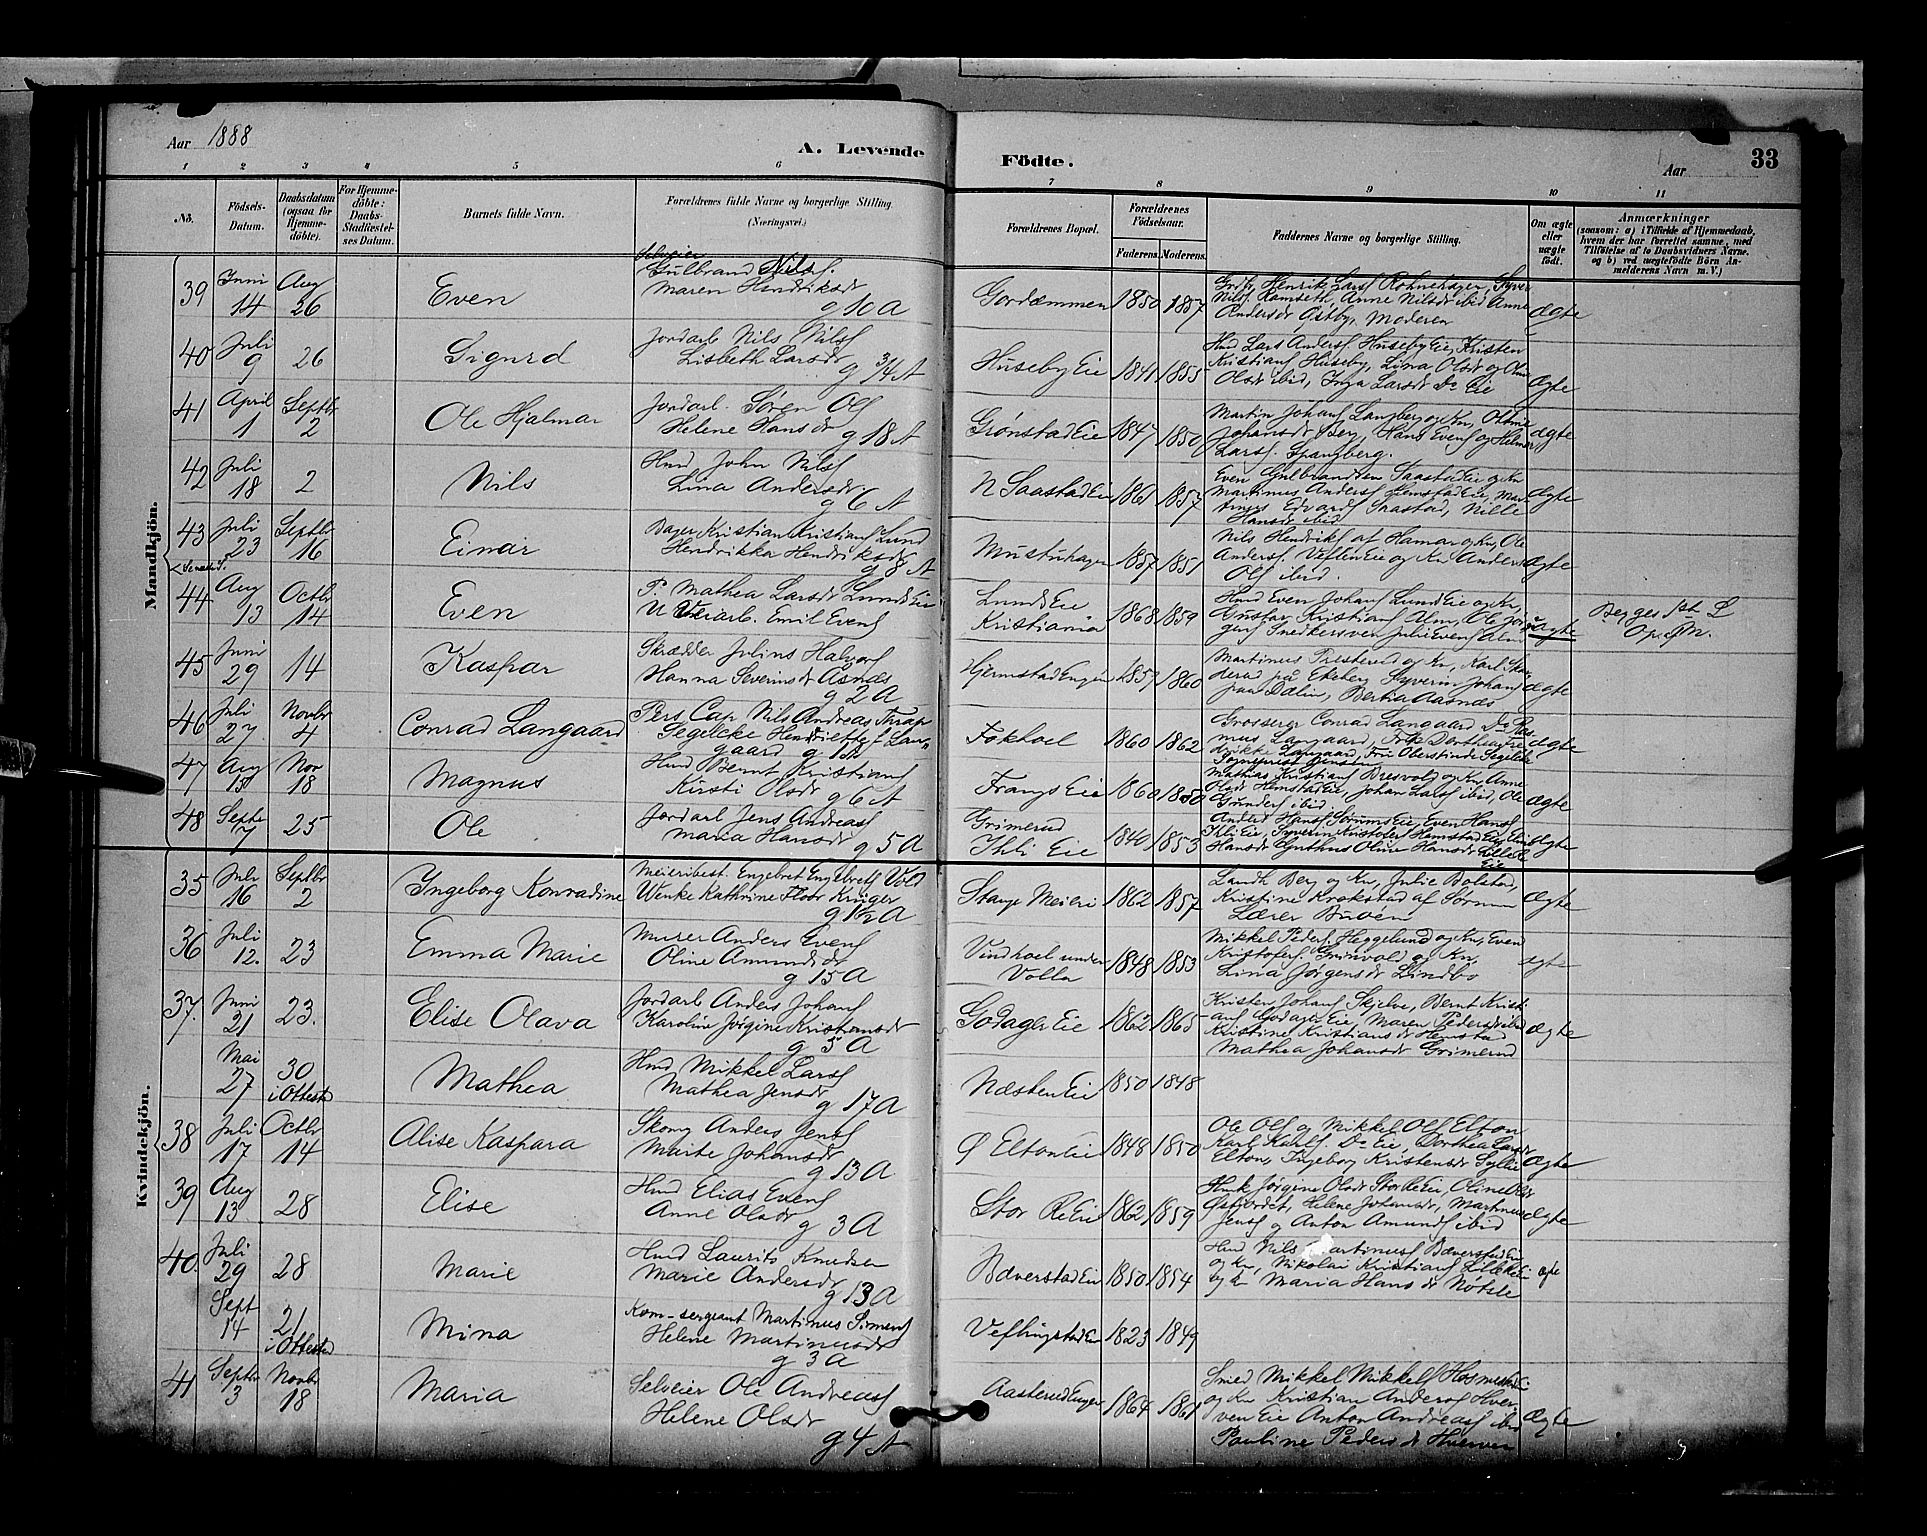 Aar 1888
A. Levende
Födte.
Aar
33
1 2 3 4 5 6 7 8 9 10 11
No. Födsels-Datum. Daabsdatum (ogsaa for Hjemme-döbte). For Hjemme-döbte: Daabs-Stadfæstelses Datum. Barnets fulde Navn. Forældrenes fulde Navne og borgerlige Stilling. (Næringsvei.) Forældrenes Bopæl. Forældrenes Födselsaar. Faderens. Moderens. Faddernes Navne og borgerlige Stilling. Om ægte eller uægte födt. Anmærkninger (saasom: a) i Tilfælde af Hjemmedaab, hvem der har forrettet samme, med Tilföielse af to Daabsvidners Navne, og b) ved uægtefödte Börn Anmelderens Navn m. V.)
Mandkjön.
39 Juni 14 Aug 26 Even
Selveier
Gulbrand Nilss.
Maren Hendriksdr
g 10 A
Gordæmmen 1850 1857
Henrik Larss
Nilss. Ramseth, Anne Nilsdr ibid Anne
Andersdr Østby, Moderen
ægte
40 Juli 9 26 Sigurd
Jordarb Nils Nilss
Lisbeth Larsdr
g 3/4 A
Huseby Eie 1841 1855
Hmd Lars Anderss Huseby Eie, Kristen
Kristianss Huseby, Lina Olsdr og
Olsdr ibid, Inga Larsdr Do Eie
Ægte
41 April 1 Septbr 2 Ole Hjalmar
Jordarb. Søren Ols
Helene Hansdr
g 18 A
Grønstad Eie 1847 1850
Martin Johanss Langberg og Kn,
Johansdr Berg, Hans Evens og
Larss. Spangberg.
ægte
42 Juli 18 2 Nils
Hmd John Nilss
Lina Andersdr
g 6 A
N Saastad Eie 1861 1857
Even Gulbrandsen Saastad Eie og Kn
Martinus Anderss Hemstad Eie, Mar
tinus Edvards Saastad, Nille
Hansdr ibid
Ægte
43 Juli 23 Septbr 16 Einar
Bager Kristian Kristianss Lund
Hendrikka Hendriksdr
g 8 A
Mustuhagen 1857 1851
Nils Hendriks af Hamar og Kn, Ole
Anderss. Vestlien Eie og Kn Anders
Ols ibid.
Ægte
44 Aug 13 Octbr 14 Even
P. Mathea Larsdr Lunds Eie
U arb. Emil Evens
Lunds Eie
Kristiania
1868 1859
Hmd Even Johans Lunds Eie og Kn,
Gustav Kristians Alm, Ole
uægte
Begges 1st L
Op. f M.
45 Juni 29 14 Kaspar
Skrædder Julius Halvors
Hanna Severinsdr Asnæs
g 2 A
Hjermstad Engen 1859 1860
Martinus Presterud og Kn, Karl
Ekeberg Syverin Johans
Dælin, Berthe Aasnæs
ægte
46 Juli 27 Novbr 4 Conrad Langaard
Pr. Cap Nils Andreas Thrap
Segelcke Henriette f Lan
gaard g 1½
Fokhoel 1860 1862
Grosserer Conrad Langaard Do Ras
mus Langaard, Frk Dorthea Fre
drikke Langaard, Fru Oberstinde Segelcke
Sogneprest Jensen
ægte
47 Aug 15 Nov 18 Magnus
Hmd Bernt Kristians
Kirsti Olsdr
g 6 A
Frangs Eie 1860 1850
Mathias Kristians Bresvold og Kn Anne
Olsdr Hemstad Eie, Johan Larss ibid, Ole
Gunders ibid
Ægte
48 Septbr 7 25 Ole
Jordarb Jens Andreass
Maria Hansdr
g 5 A
Grimerud
Ihli Eie
1840 1853
Anders Hans Sørums Eie, Even Hans
Ihli Eie, Syverin Kristofers Hemstad Eie
Hansdr Oline Hansdr Lille
ægte
Kvindekjön.
35 Juli 16 Septbr 2 Ingeborg Konradine
Meieribest. Engebret Engebrets Vold
Wenke Kathrine Floor Krüger
g 1½ A
Stange Meieri 1862 1857
Landh Berg og Kn, Julie Bolstad,
Kristine Krakstad af Sørum
Lærer Buvén
Ægte
36 Juli 12. 23 Emma Marie
Murer Anders Evens
Oline Amundsdr
g 15 A
Vindhoel under
Volla
1848 1853
Mikkel Peders. Heggelund og Kn, Even
Kristofers. Grinvold og Kn,
Lina Jørgensdr Lindbo
ægte
37. Juni 21 23. Elise Olava
Jordarb Anders Johans
Karoline Jørgine Kristiansdr
g 5 A
Godager Eie 1862 1865
Kristen Johans Skjelve, Bernt Kristi
ans Godager Eie, Maren Pedersdr ibid
Kristine Kristiansdr Hemstad
Mathea Johansdr Grimerud
Ægte
Mai 27 30 i Ottestad Mathea
Hmd Mikkel Larss
Mathea Jensdr
g 17 A
Næsten Eie 1850 1848
38 Juli 17 Octbr 14 Alise Kaspara
Skomg Anders Jens
Marte Johansdr
g 13 A
Ø Elton Eie 1848 1850
Ole Ols og Mikkel Ols Elton
Karl Karls. Do Eie, Dorthea Larsdr
Elton, Ingeborg Kristensdr
Ægte
39 Aug 13 28 Elise
Hmd Elias Evens
Anne Olsdr
g 3 A
Stor Re Eie 1862 1859
Jørgine Olsdr Storre Eie, Oline Olsdr
Helene Johansdr, Martinus
Jens og Anton Amunds ibid
ægte
40. Juli 29 28 Marie
Hmd Laurits Knudsen
Marie Andersdr
g 13 A
Bæverstad Eie 1850 1854
Hmd Nils Martinuss Bæverstad Eie
og Kn, Nikolai Kristians Lilleh Eie
og Kn Maria Hansdr Nøtsle
ægte
Sept 14 21 i Ottestad Mina
Kom-sergeant Martinus Simens
Helene Martinusdr
g 3 A
Veflingstad Eie 1823 1849
41 Septbr 3 Novbr 18 Maria
Selveier Ole Andreass
Helene Olsdr
g 4 A
Aasterud Engen 1864 1861
Smed Mikkel Mikkels
og Kn Kristian Anders Hver
ven Eie Anton Andreass ibid
Pauline Pedersdr Hverven
Ægte